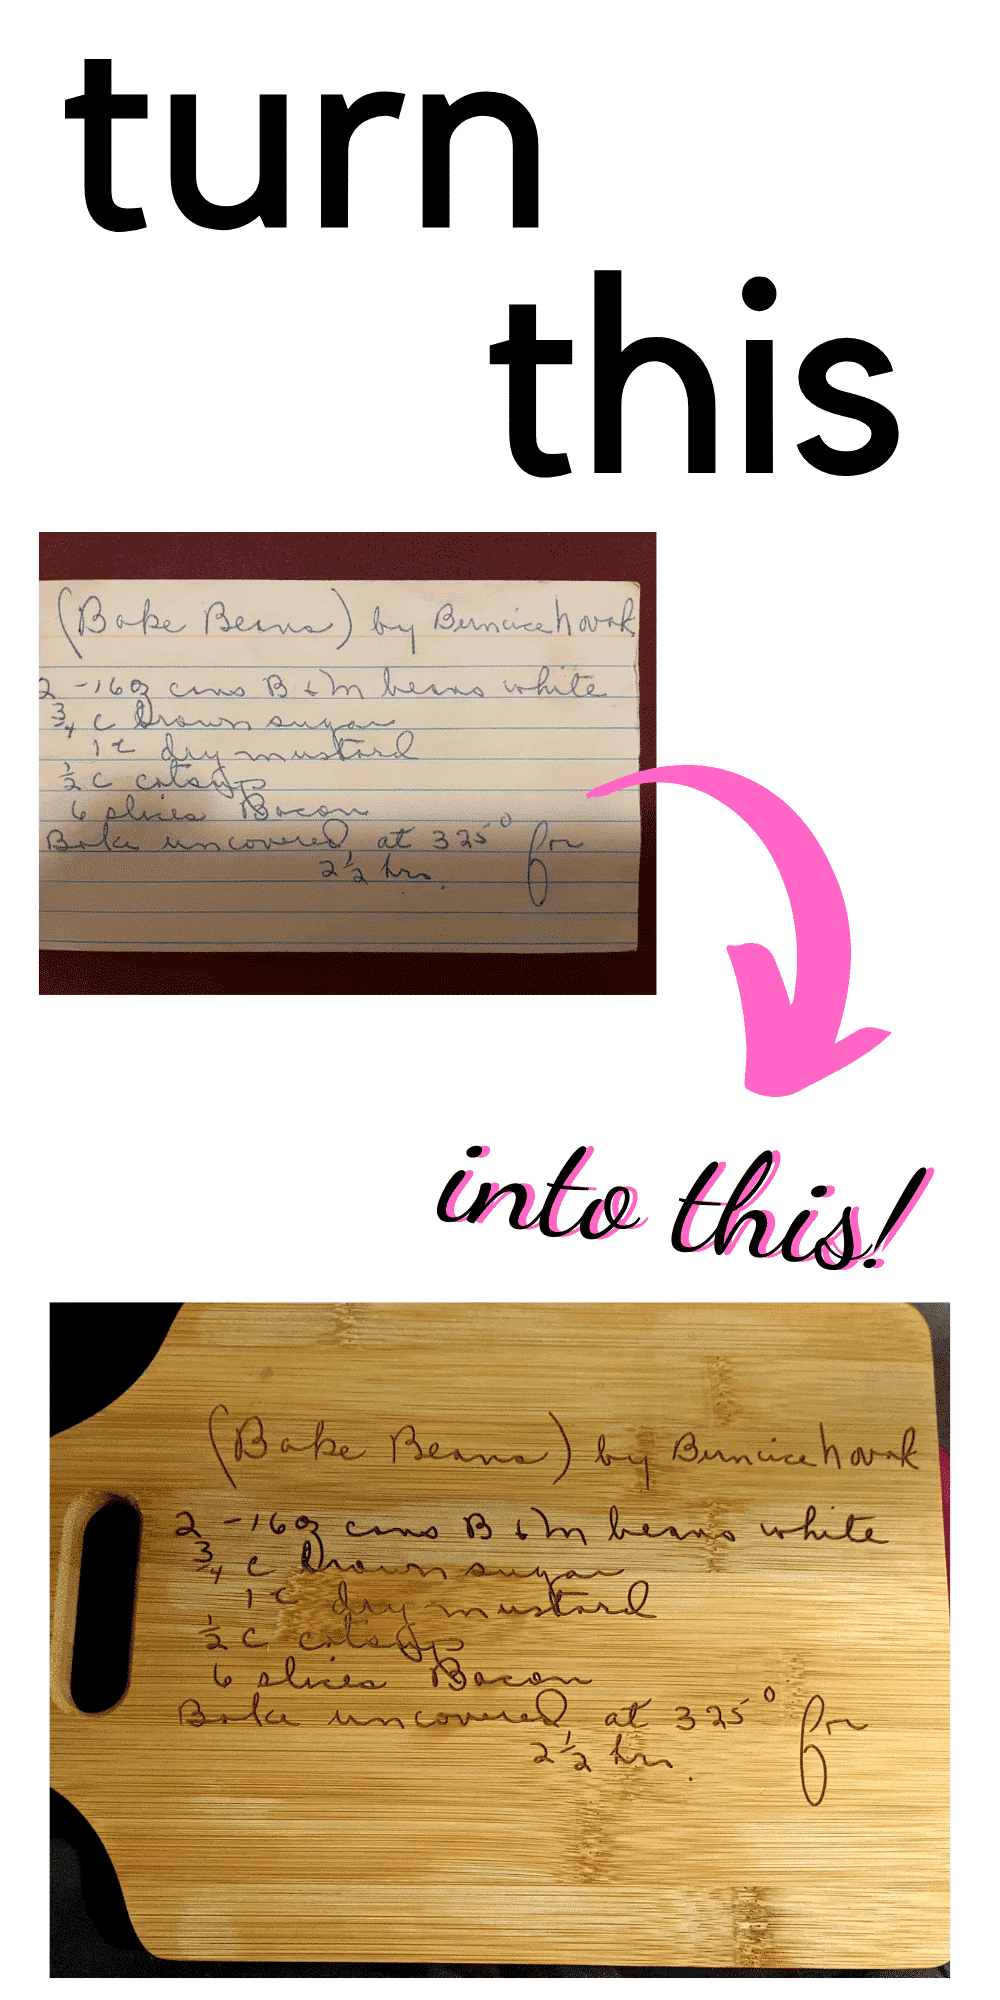 turn
this
(Bake Beans) by Bernice Novak
2 - 16 oz cans B & M beans white
3/4 c brown sugar
1 t dry mustard
1/2 c catsup
6 slices Bacon
Bake uncovered at 325° for
2 1/2 hrs.
into this!
(Bake Beans) by Bernice Novak
2 - 16 oz cans B & M beans white
3/4 c brown sugar
1 t dry mustard
1/2 c catsup
6 slices Bacon
Bake uncovered at 325° for
2 1/2 hrs.